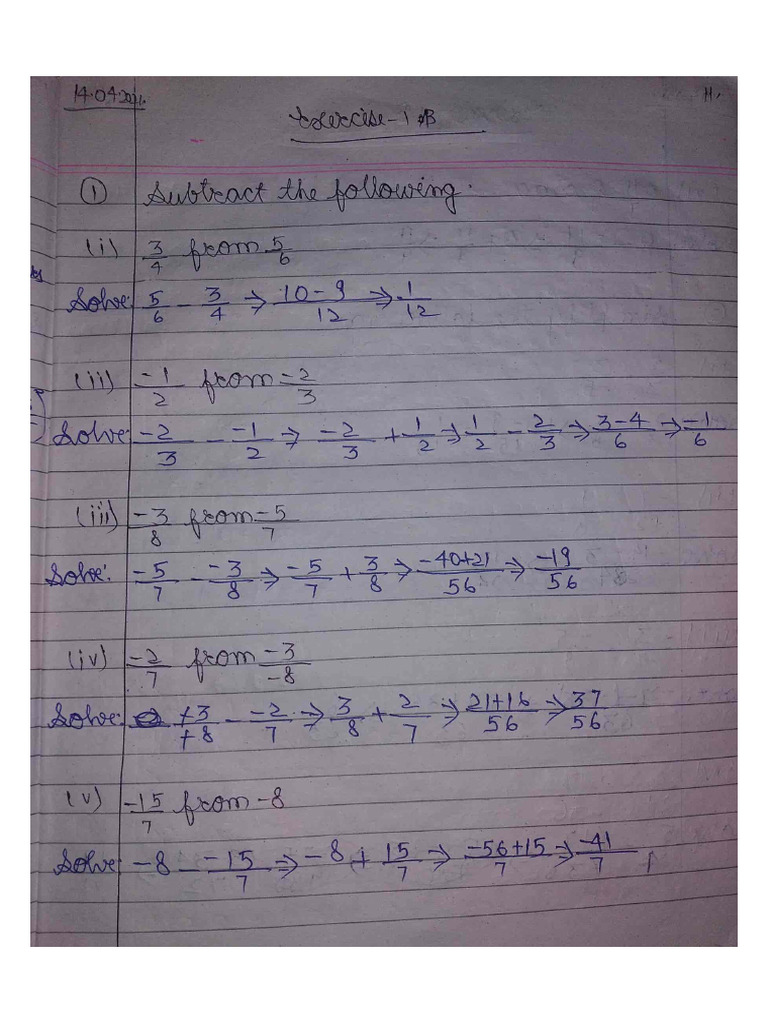 14.04.2021.
H.
Exercise-1 B
① Subtract the following.
(i) 3/4 from 5/6
Solve: 5/6 - 3/4 → 10-9/12 → 1/12
(ii) -1/2 from -2/3
Solve: -2/3 - -1/2 → -2/3 + 1/2 → 1/2 - 2/3 → 3-4/6 → -1/6
(iii) -3/8 from -5/7
Solve: -5/7 - -3/8 → -5/7 + 3/8 → -40+21/56 → -19/56
(iv) -2/7 from -3/-8
Solve: +3/+8 - -2/7 → 3/8 + 2/7 → 21+16/56 → 37/56
(v) -15/7 from -8
Solve: -8 - -15/7 → -8 + 15/7 → -56+15/7 → -41/7